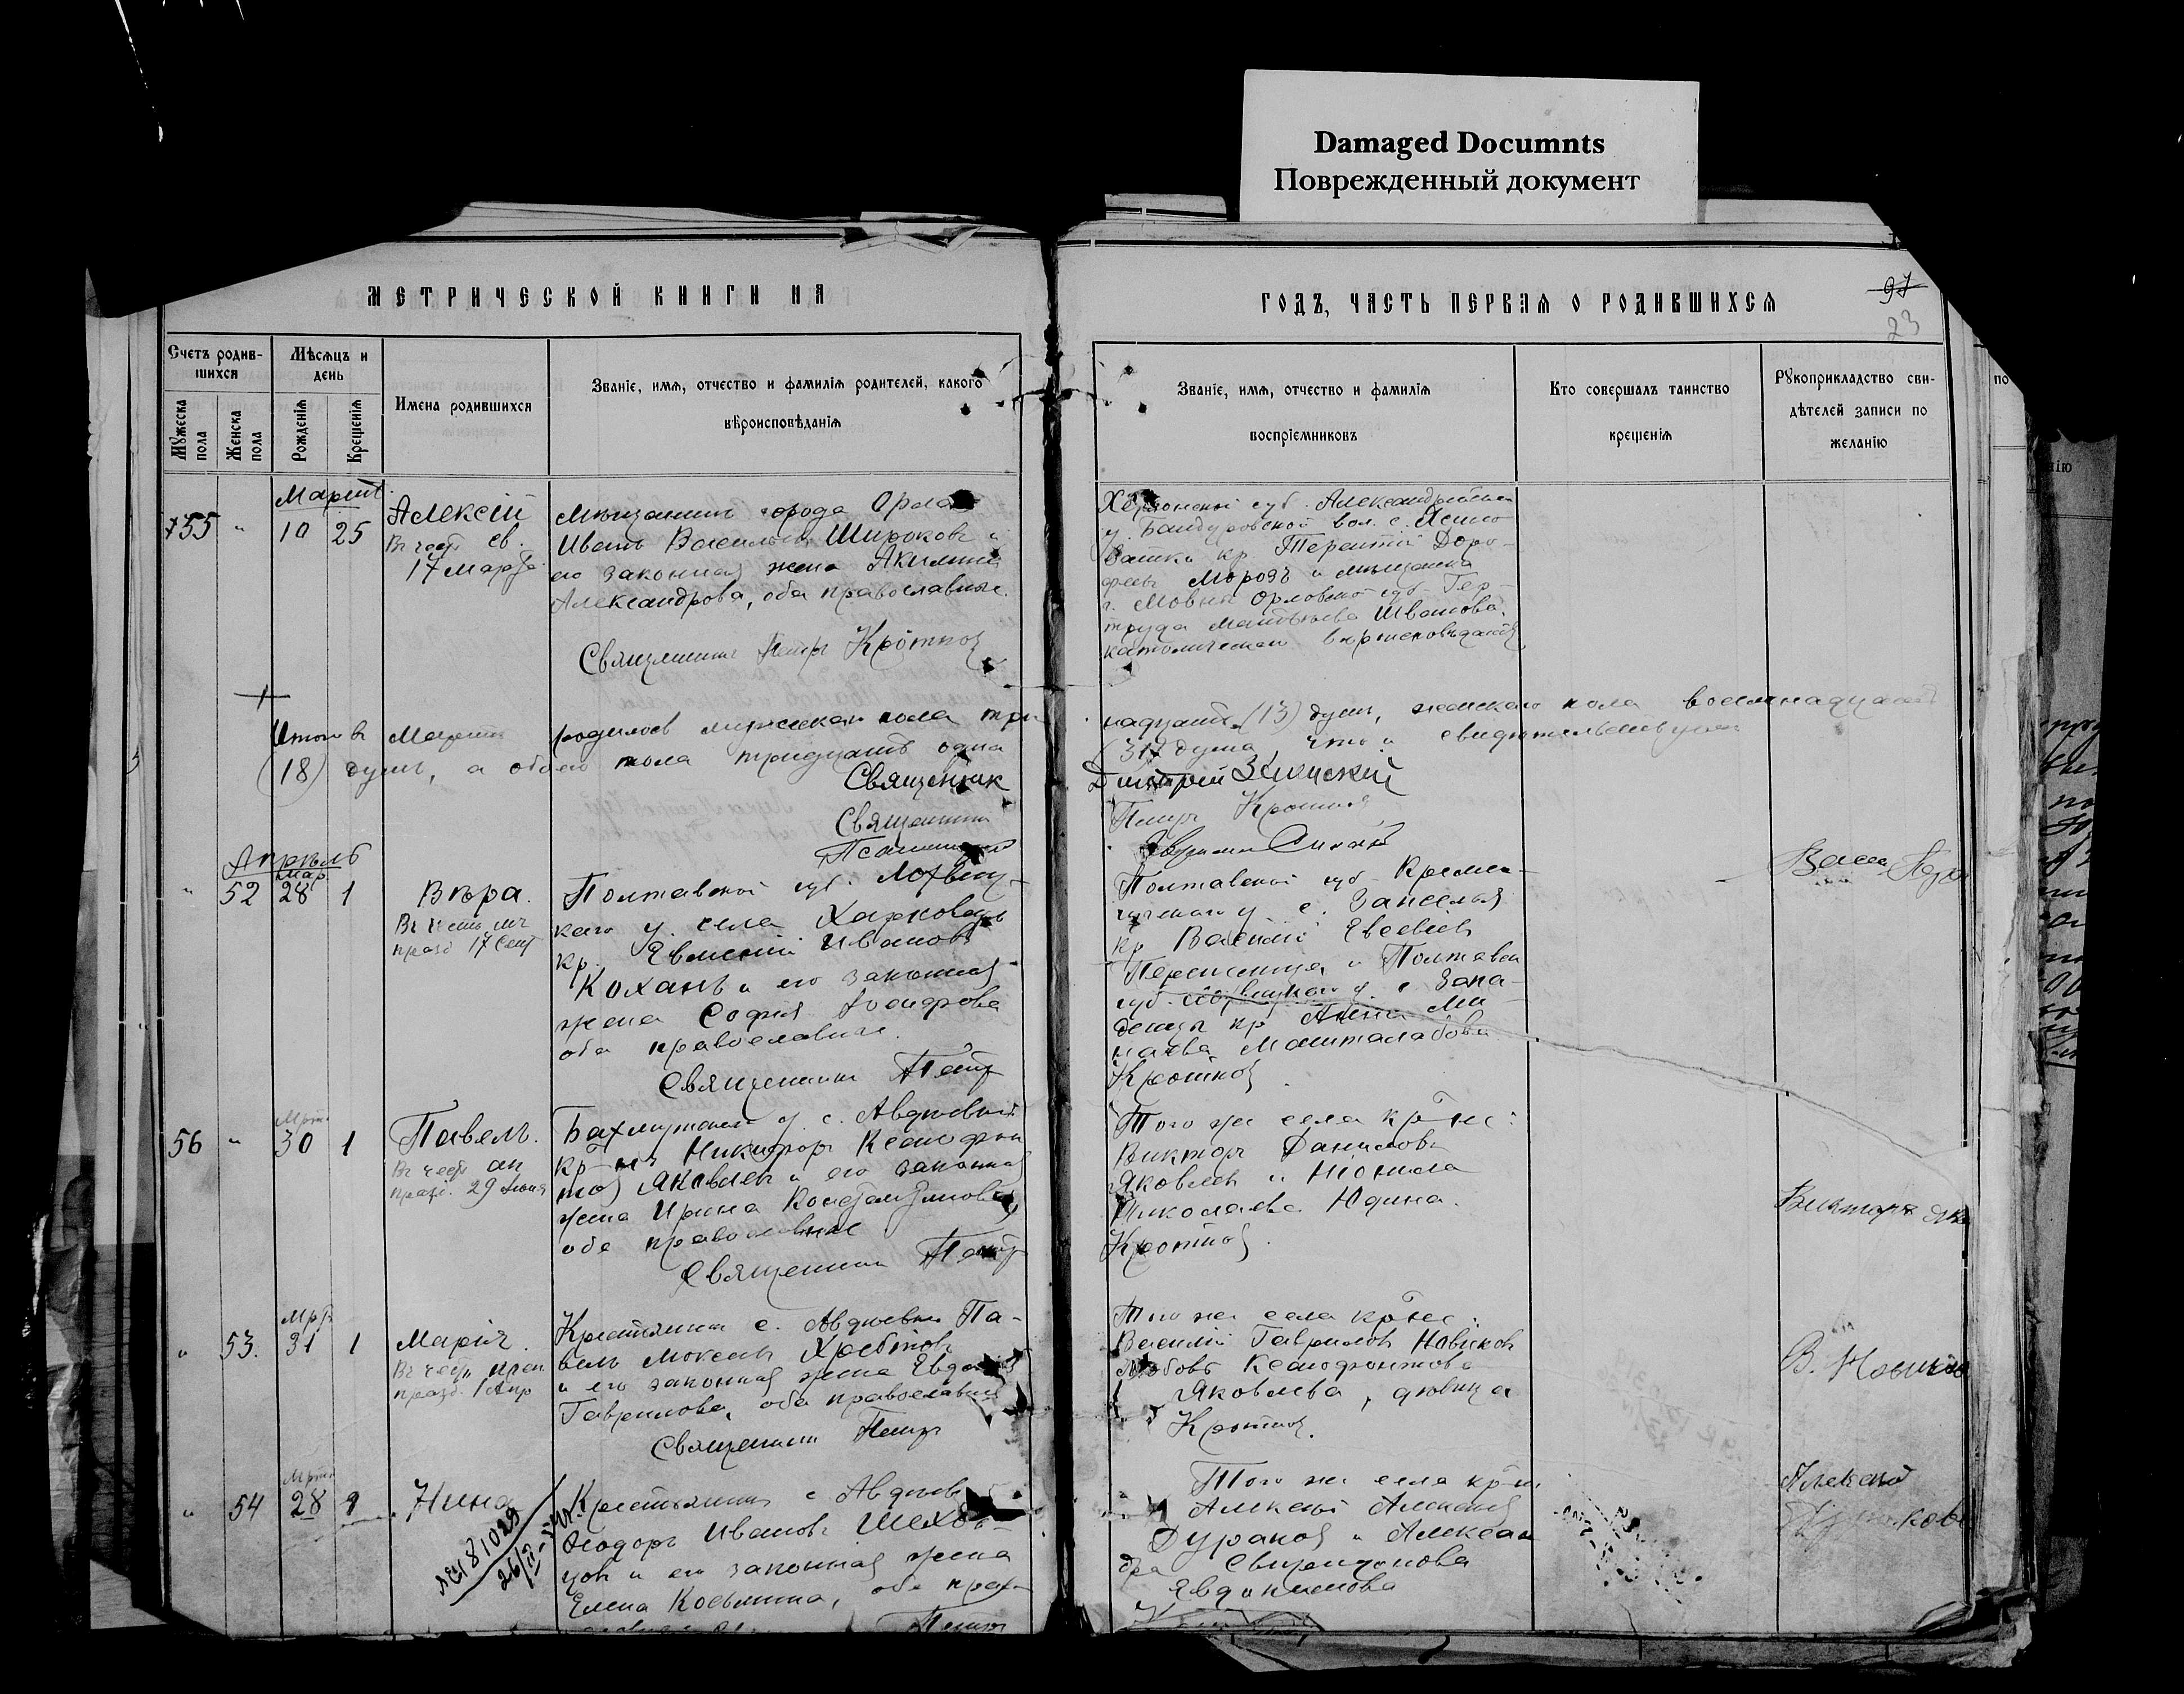 Damaged Documnts
Поврежденный документ
МЕТРИЧЕСКОЙ КНИГИ НА
ГОДЪ, ЧАСТЬ ПЕРВАЯ О РОДИВШИХСЯ
97
23
Счетъ родив-
шихся
Мѣсяцъ и
день
Мужеска пола
Женска пола
Рожденія
Крещенія
Имена родившихся
Званіе, имя, отчество и фамилія родителей, какого
вѣроисповѣданія
Званіе, имя, отчество и фамилія
воспріемниковъ
Кто совершалъ таинство
крещенія
Рукоприкладство сви-
дѣтелей записи по
желанію
Мартъ
55 " 10 25
Алексій
Въ честь св.
17 Марта
Мѣщанинъ города Орла
Иванъ Васильевъ Широковъ и
его законная жена Акилина
Александрова, оба православные.
Священникъ Петръ Кроткой
Херсонской губ. Александрійскаго
у. Бандуровской вол. с. Ясино
ватки кр. Терентій Доро-
феевъ Морозъ и мѣщанка
г. Орловской губ. Гер-
труда Матвѣева Иванова,
католическаго вѣроисповѣданія
Итого въ Мартѣ родилось мужеска пола три
надцать (13) душъ, женскаго пола восемнадцать
(18) душъ, а обоего пола тридцать одна
(31) душа, что и свидѣтельствуемъ
Священник
Дмитрій
Священникъ
Петръ Кроткой
Апрѣль
Мар.
" 52 28 1
Вѣра.
Въ честь мч.
празд 17 Сент
Полтавской губ. Лохвиц-
каго у. села Харковецъ
кр. Евменій Ивановъ
Коханъ и его законная
жена София Іосифова
оба православные.
Священникъ Петръ
Полтавской губ. Кремен-
чугскаго у. с.
кр Василій Евсевіевъ
и Полтавск
губ. у. с.
кр Анна Ми-
наева
Кроткой
Мрт.
56 " 30 1
Павелъ.
Въ честь ап
празд. 29 Іюня
Бахмутскаго у. с. Авдѣевки
кр-нъ Никифоръ Ксенофон
товъ Яковлевъ и его законная
жена Ирина Константинова,
оба православные
Священникъ Петръ
Того же села кр-не:
Викторъ Даниловъ
Яковлевъ и Неонила
Николаева Юдина.
Кроткой.
Викторъ Яко
Мрт
" 53. 31 1
Марія.
Въ честь преп
празд. 1 Апр
Крестьянинъ с. Авдѣевки Па-
велъ Мокеевъ Хребтовъ
и его законная жена Евдокія
Гаврилова, оба православные
Священникъ Петръ
Того же села кр-не:
Василій Гавриловъ Новиковъ
Любовь Ксенофонтова
Яковлева, дѣвица
Кроткой.
В. Новиковъ
Мрт.
" 54 28
Нина
Крестьянинъ с Авдѣев
Ѳеодоръ Ивановъ Шехов-
цовъ и его законная жена
Елена Косьмина, оба прав-
Петръ
Того же села кр-не
Алексѣй Алексѣевъ
Дураковъ и Алексан
дра Свиридонова
Евдокимова
Алексѣй